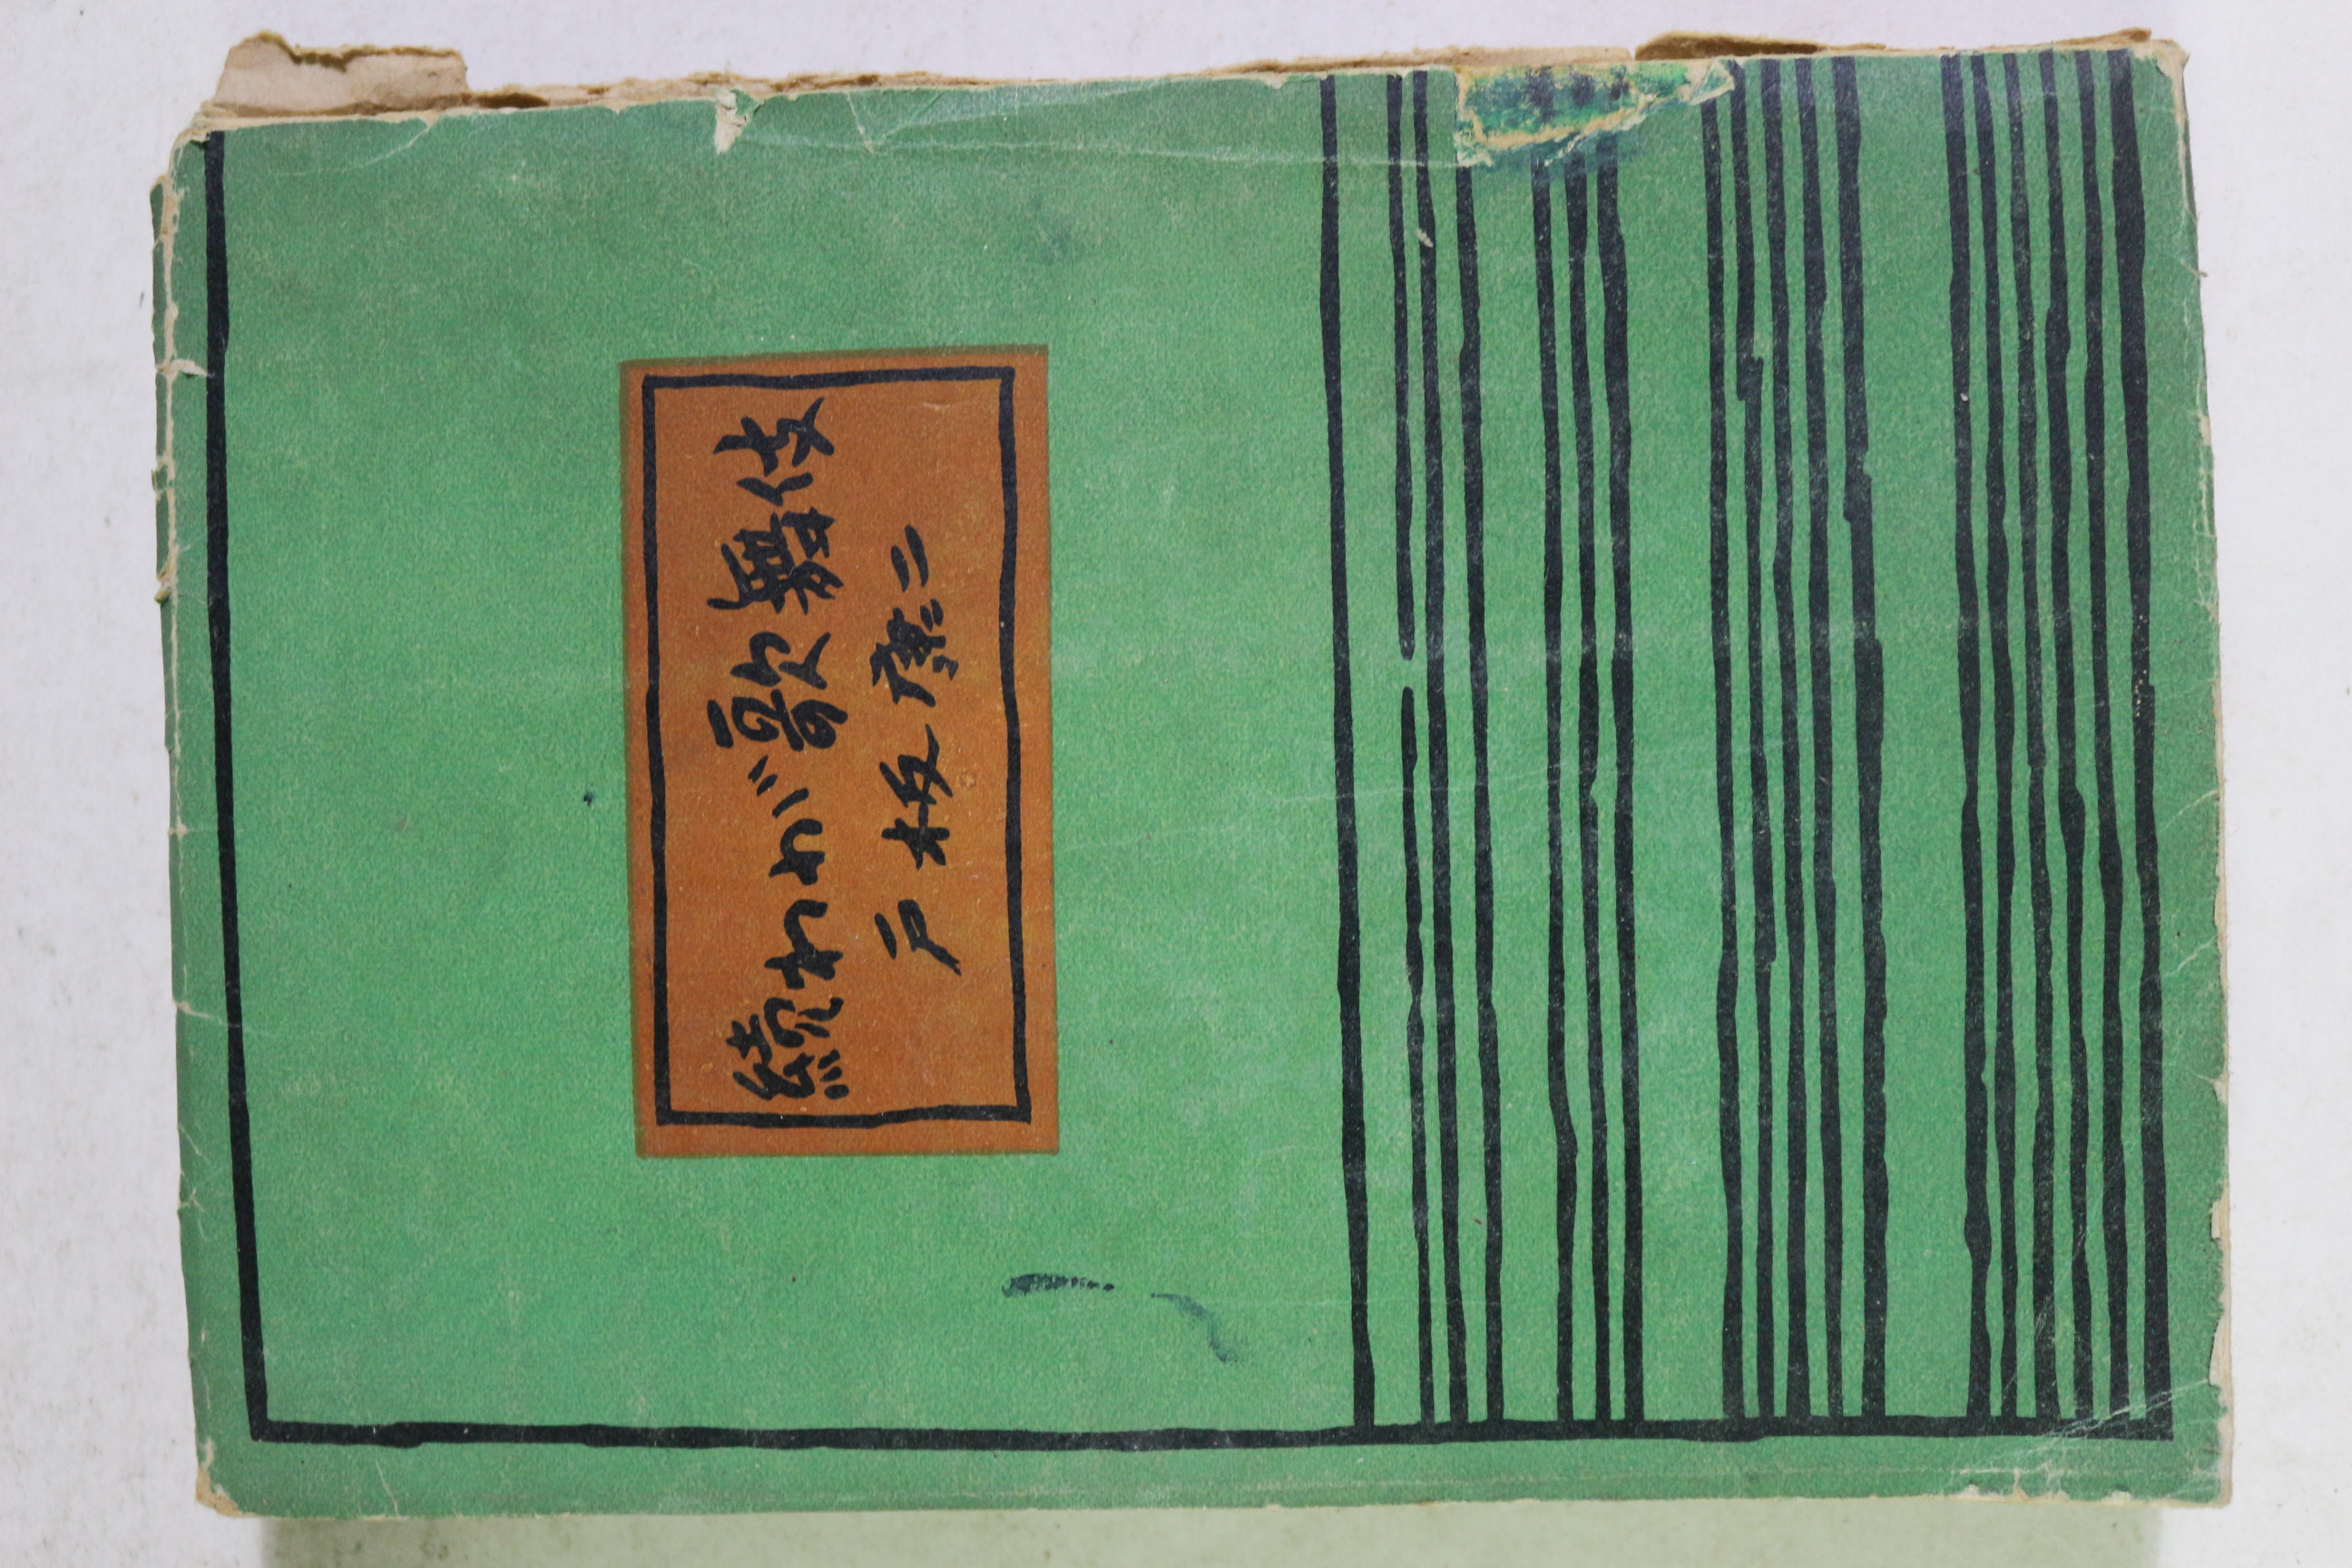 続わが歌舞伎
戸板康二